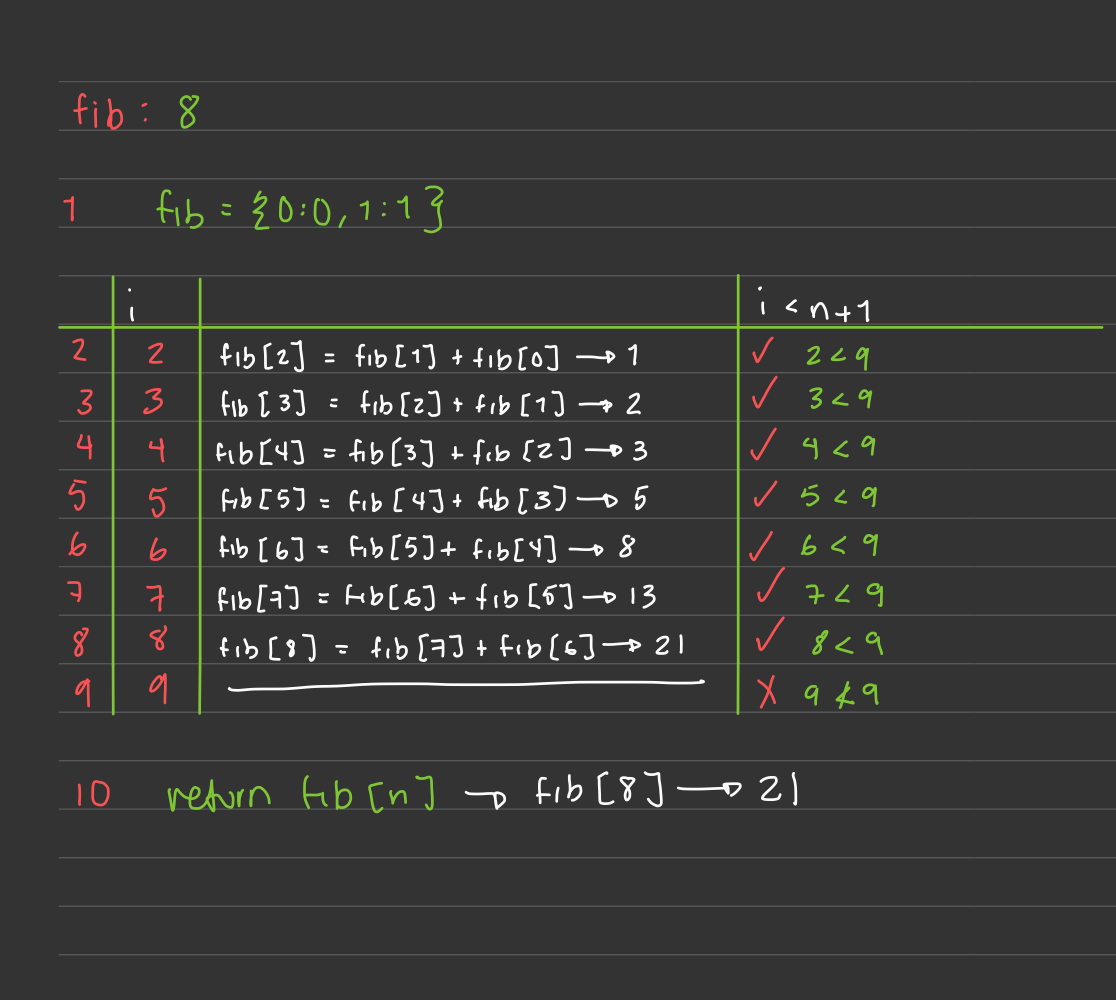 fib : 8
1 fib = {0:0, 1:1}
i i < n+1
2 2 fib[2] = fib[1] + fib[0] → 1 ✓ 2 < 9
3 3 fib[3] = fib[2] + fib[1] → 2 ✓ 3 < 9
4 4 fib[4] = fib[3] + fib[2] → 3 ✓ 4 < 9
5 5 fib[5] = fib[4] + fib[3] → 5 ✓ 5 < 9
6 6 fib[6] = fib[5] + fib[4] → 8 ✓ 6 < 9
7 7 fib[7] = fib[6] + fib[5] → 13 ✓ 7 < 9
8 8 fib[8] = fib[7] + fib[6] → 21 ✓ 8 < 9
9 9 X 9 ≮ 9
10 return fib[n] → fib[8] → 21